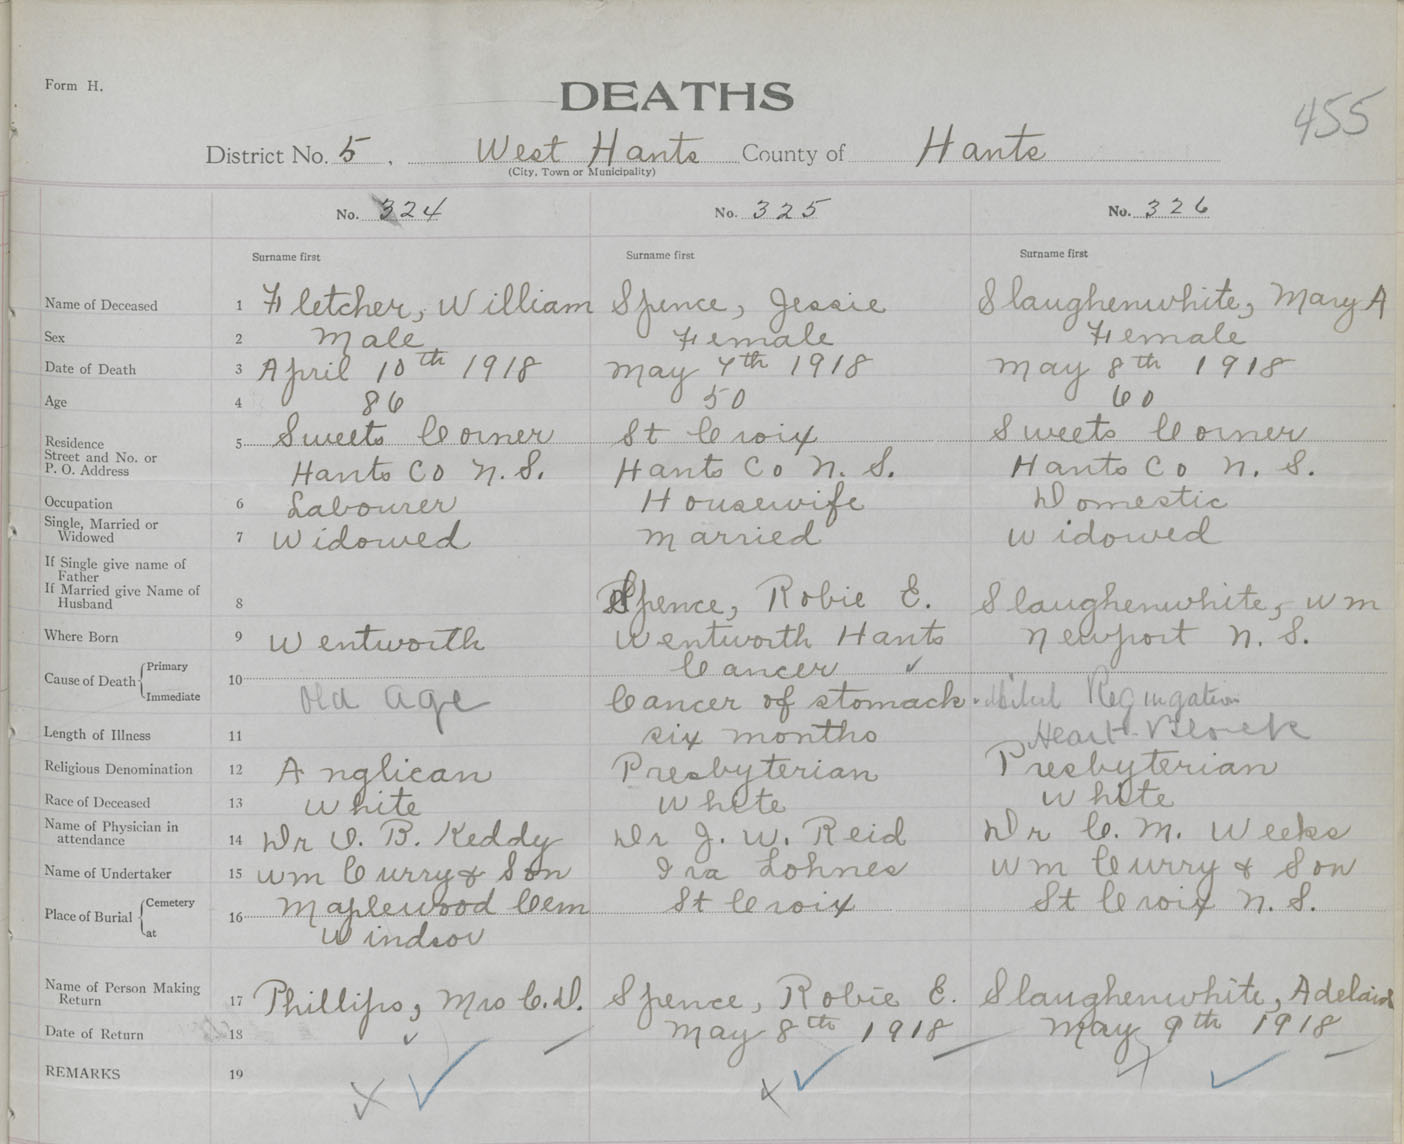 Form H.
DEATHS
455
District No. 5, West Hants County of Hants
(City, Town or Municipality)
No. 324 No. 325 No. 326
Surname first Surname first Surname first
Name of Deceased 1 Fletcher, William Spence, Jessie Slaughenwhite, Mary A
Sex 2 Male Female Female
Date of Death 3 April 10th 1918 May 7th 1918 May 8th 1918
Age 4 86 50 60
Residence 5 Sweets Corner St Croix Sweets Corner
Street and No. or
P. O. Address Hants Co N.S. Hants Co N.S. Hants Co N.S.
Occupation 6 Labourer Housewife Domestic
Single, Married or
Widowed 7 Widowed Married Widowed
If Single give name of
Father
If Married give Name of
Husband 8 Spence, Robie E. Slaughenwhite, Wm
Where Born 9 Wentworth Wentworth Hants Newport N.S.
Cause of Death Primary 10 Cancer
Immediate Old Age Cancer of stomach
Length of Illness 11 six months Heart Block
Religious Denomination 12 Anglican Presbyterian Presbyterian
Race of Deceased 13 White White White
Name of Physician in
attendance 14 Dr O. B. Keddy Dr J. W. Reid Dr C. M. Weeks
Name of Undertaker 15 Wm Curry & Son Ira Lohnes Wm Curry & Son
Place of Burial Cemetery 16 Maplewood Cem St Croix St Croix N.S.
at Windsor
Name of Person Making
Return 17 Phillips, Mrs C.D. Spence, Robie E. Slaughenwhite, Adelaid
Date of Return 18 May 8th 1918 May 9th 1918
REMARKS 19